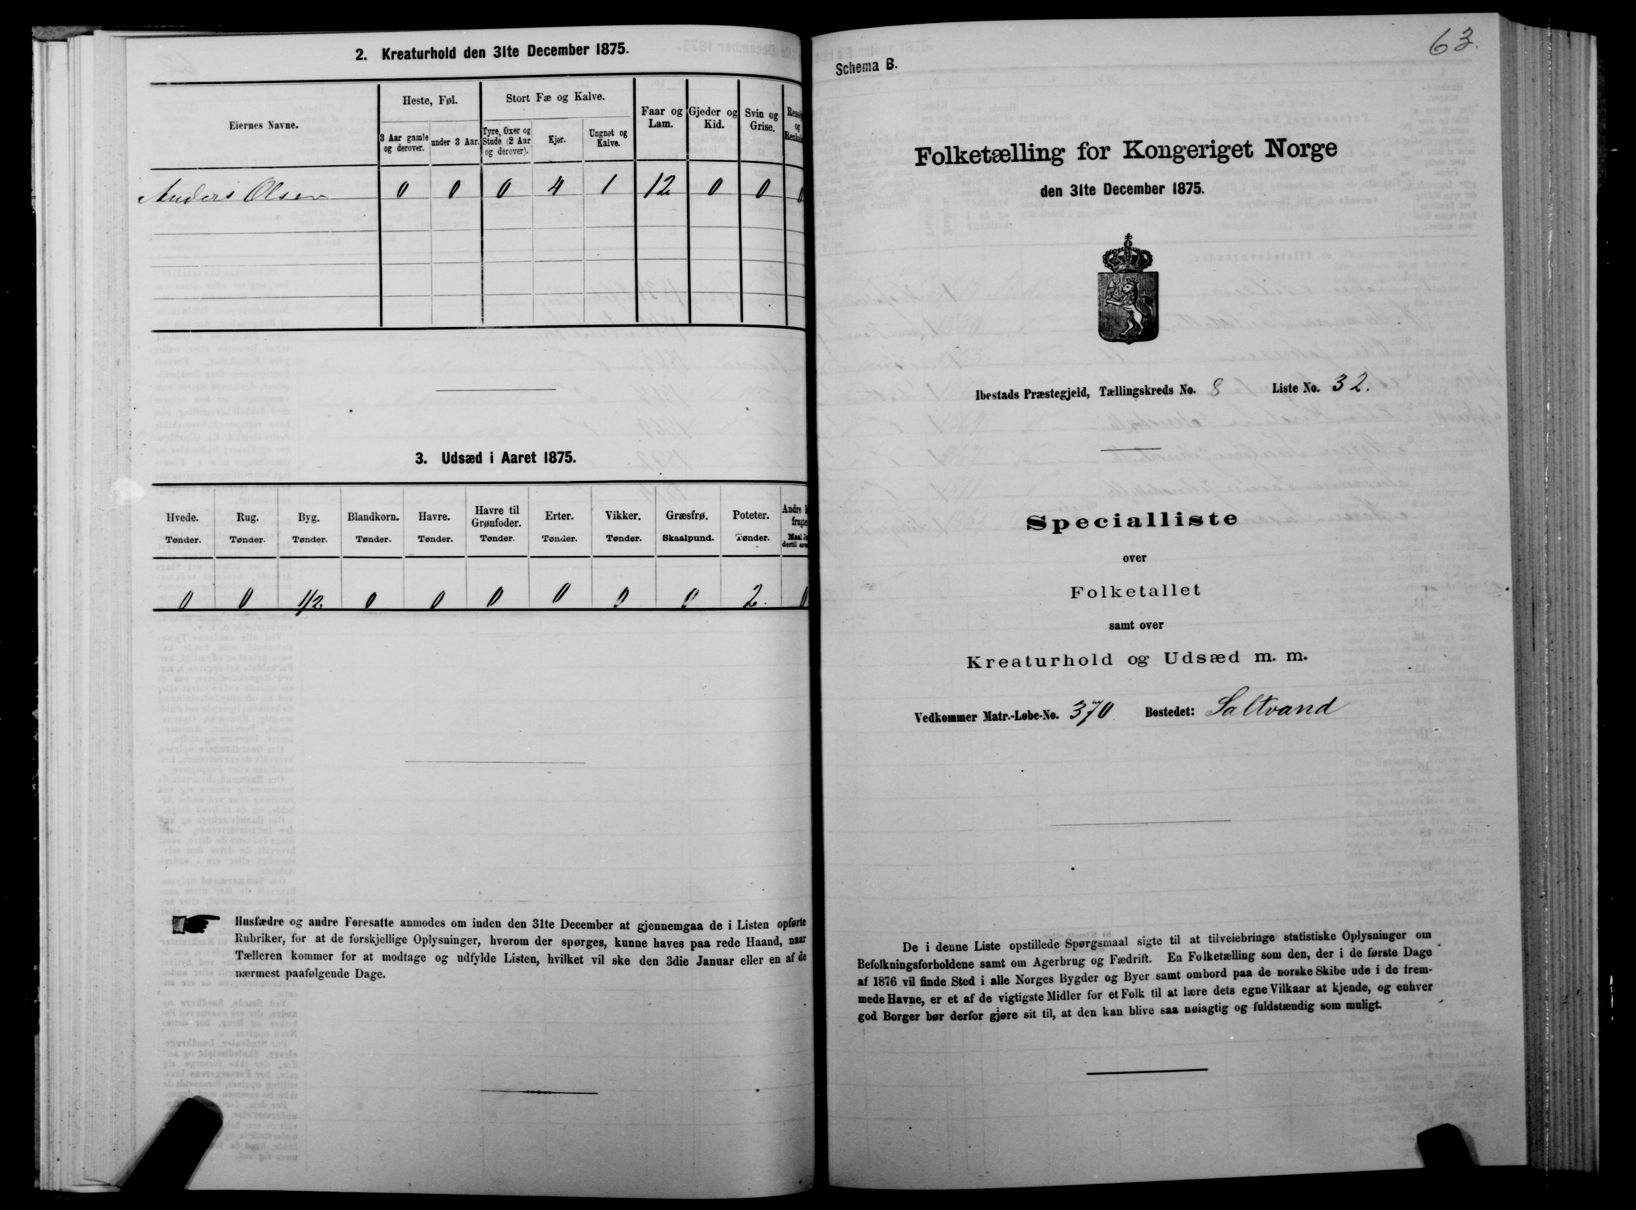 2. Kreaturhold den 31te December 1875.
Eiernes Navne.
Heste, Føl.
Stort Fæ og Kalve.
3 Aar gamle og derover.
under 3 Aar.
Tyre, Oxer og Stude (2 Aar og derover).
Kjør.
Ungnøt og Kalve.
Faar og Lam.
Gjeder og Kid.
Svin og Grise.
Anders Olsen 0 0 0 4 1 12 0 0 0
3. Udsæd i Aaret 1875.
Hvede. Rug. Byg. Blandkorn. Havre. Havre til Grønfoder. Erter. Vikker. Græsfrø. Poteter. Andre
Tønder. Tønder. Tønder. Tønder. Tønder. Tønder. Tønder. Tønder. Skaalpund. Tønder.
0 0 1/2 0 0 0 0 0 0 2. 0
Husfædre og andre Foresatte anmodes om inden den 31te December at gjennemgaa de i Listen opførte
Rubriker, for at de forskjellige Oplysninger, hvorom der spørges, kunne haves paa rede Haand, naar
Tælleren kommer for at modtage og udfylde Listen, hvilket vil ske den 3die Januar eller en af de
nærmest paafølgende Dage.
63.
Schema B.
Folketælling for Kongeriget Norge
den 31te December 1875.
Ibestads Præstegjeld, Tællingskreds No. 8 Liste No. 32.
Specialliste
over
Folketallet
samt over
Kreaturhold og Udsæd m. m.
Vedkommer Matr.-Løbe-No. 370 Bostedet: Saltvand
De i denne Liste opstillede Spørgsmaal sigte til at tilveiebringe statistiske Oplysninger om
Befolkningsforholdene samt om Agerbrug og Fædrift. En Folketælling som den, der i de første Dage
af 1876 vil finde Sted i alle Norges Bygder og Byer samt ombord paa de norske Skibe ude i de frem-
mede Havne, er et af de vigtigste Midler for et Folk til at lære dets egne Vilkaar at kjende, og enhver
god Borger bør derfor gjøre sit til, at den kan blive saa nøiagtig og fuldstændig som muligt.